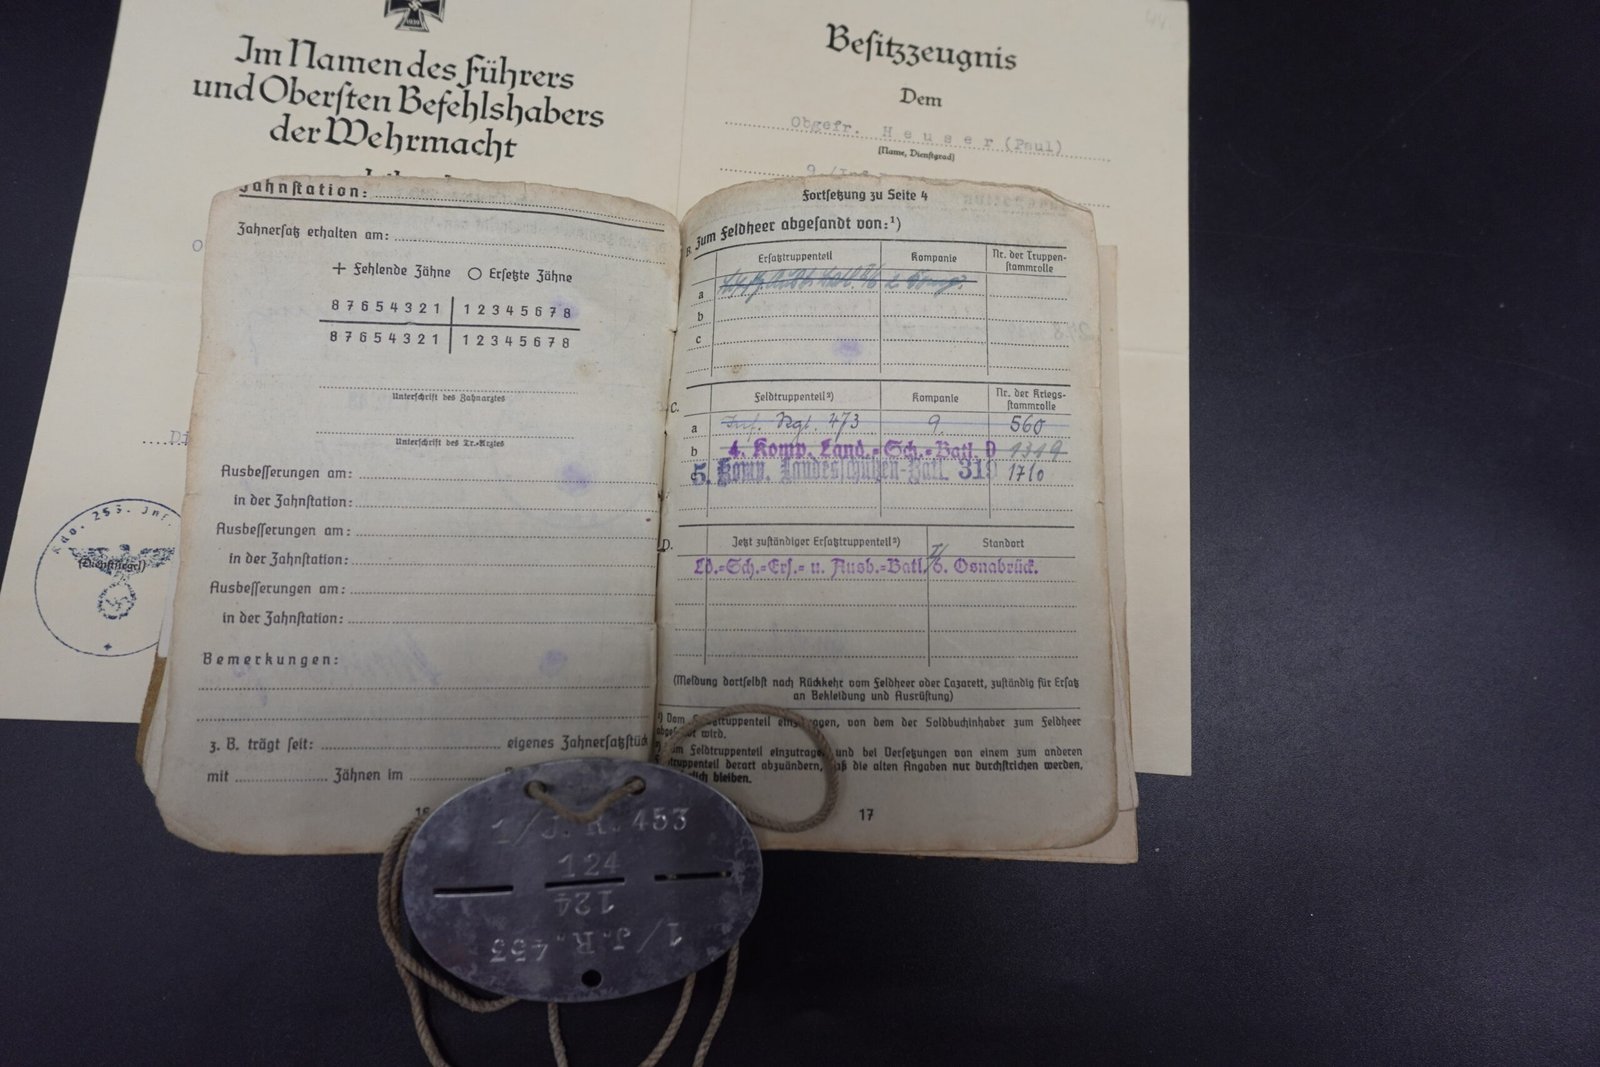 1939
Im Namen des Führers
und Obersten Befehlshabers
der Wehrmacht
Besitzzeugnis
Dem
Obgefr. Heuser (Paul)
(Name, Dienstgrad)
Kdo. 253. Inf.
(Dienstsiegel)
Zahnstation:
Zahnersatz erhalten am:
+ Fehlende Zähne O Ersetzte Zähne
8 7 6 5 4 3 2 1 1 2 3 4 5 6 7 8
8 7 6 5 4 3 2 1 1 2 3 4 5 6 7 8
Unterschrift des Zahnarztes
Unterschrift des Tr.-Arztes
Ausbesserungen am:
in der Zahnstation:
Ausbesserungen am:
in der Zahnstation:
Ausbesserungen am:
in der Zahnstation:
Bemerkungen:
z. B. trägt seit: eigenes Zahnersatzstück
mit Zähnen im
Fortsetzung zu Seite 4
B. Zum Feldheer abgesandt von:¹)
Ersatztruppenteil Kompanie Nr. der Truppen-
stammrolle
a
b
c
C. Feldtruppenteil²) Kompanie Nr. der Kriegs-
stammrolle
a Inf. Rgt. 473 9. 560
b 4. Komp. Land.-Sch.-Batl. 1319
c 5. Komp. Landesschützen-Batl. 319 1710
D. Jetzt zuständiger Ersatztruppenteil²) Standort
Ld.-Sch.-Ers.- u. Ausb.-Batl. 6. Osnabrück.
(Meldung dortselbst nach Rückkehr vom Feldheer oder Lazarett, zuständig für Ersatz
an Bekleidung und Ausrüstung)
von dem der Soldbuchinhaber zum Feldheer
wird.
Feldtruppenteil einzutragen und bei Versetzungen von einem zum anderen
derart abzuändern, die alten Angaben nur durchstrichen werden,
bleiben.
17
1/J.R.453
124
124
1/J.R.453